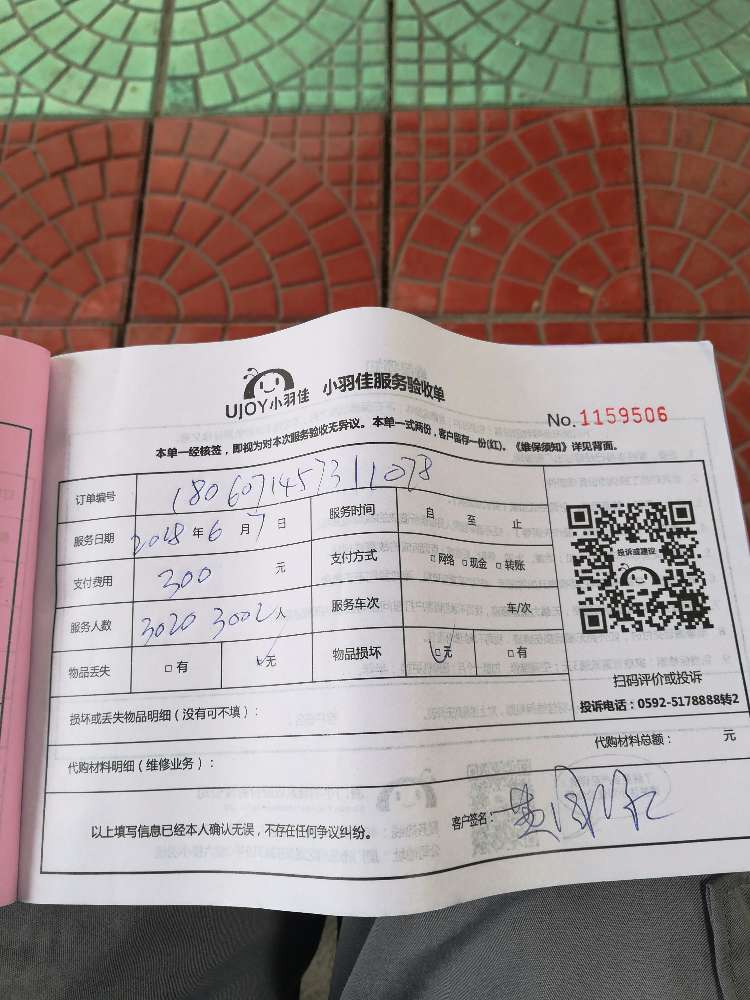 UJOY小羽佳 小羽佳服务验收单
No.1159506
本单一经核签，即视为对本次服务验收无异议。本单一式两份，客户留存一份(红)。《维保须知》详见背面。
订单编号 1806071457311078
服务日期 2018 年 6 月 7 日 服务时间 自 至 止
支付费用 300 元 支付方式 □网络 □现金 □转账
服务人数 3020 3002 人 服务车次 车/次
物品丢失 □有 □无 物品损坏 □无 □有
投诉或建议
扫码评价或投诉
投诉电话：0592-5178888转2
损坏或丢失物品明细（没有可不填）：
代购材料明细（维修业务）： 代购材料总额： 元
以上填写信息已经本人确认无误，不存在任何争议纠纷。 客户签名：